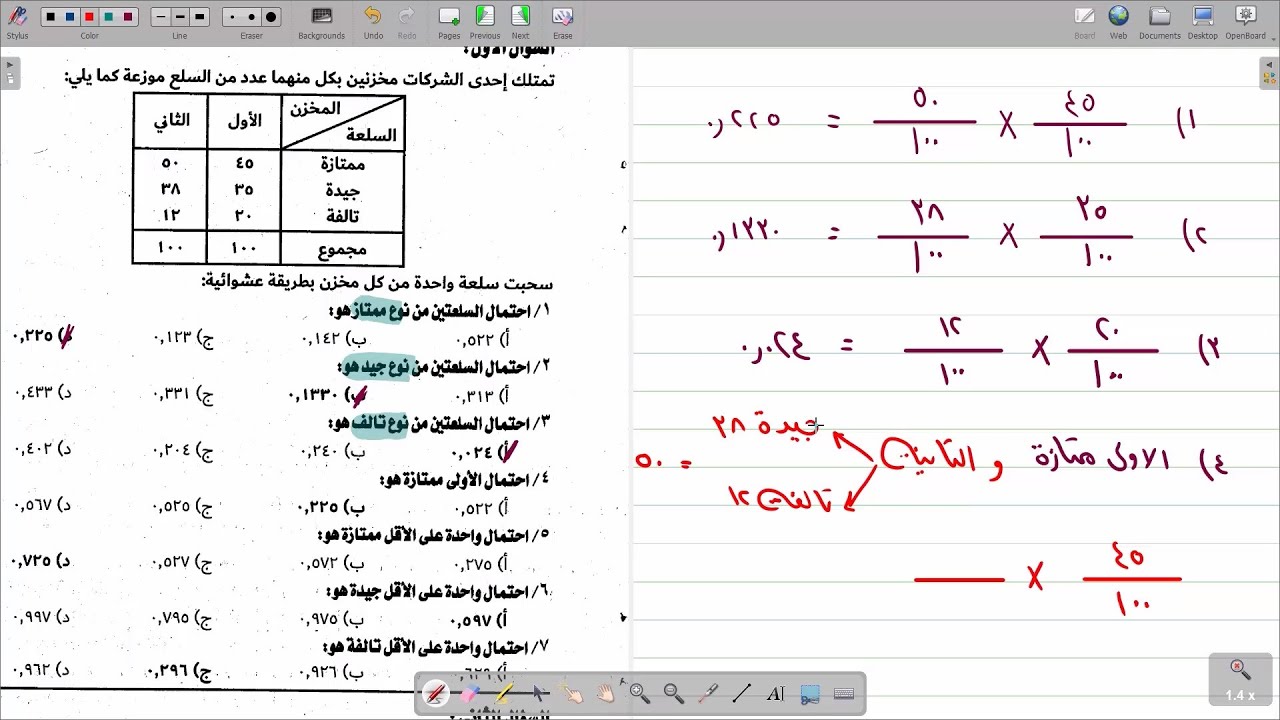 Stylus Color Line Eraser Backgrounds Undo Redo Pages Previous Next Erase Board Web Documents Desktop OpenBoard
السؤال الأول:
تمتلك إحدى الشركات مخزنين بكل منهما عدد من السلع موزعة كما يلي:
المخزن السلعة الأول الثاني
ممتازة ٤٥ ٥٠
جيدة ٣٥ ٣٨
تالفة ٢٠ ١٢
مجموع ١٠٠ ١٠٠
سحبت سلعة واحدة من كل مخزن بطريقة عشوائية:
١/ احتمال السلعتين من نوع ممتاز هو:
أ) ٠,٥٢٢ ب) ٠,١٤٢ ج) ٠,١٢٣ د) ٠,٢٢٥
٢/ احتمال السلعتين من نوع جيد هو:
أ) ٠,٣١٣ ب) ٠,١٣٣٠ ج) ٠,٣٣١ د) ٠,٤٣٣
٣/ احتمال السلعتين من نوع تالف هو:
أ) ٠,٠٢٤ ب) ٠,٢٤٠ ج) ٠,٢٠٤ د) ٠,٤٠٢
٤/ احتمال الأولى ممتازة هو:
أ) ٠,٥٢٢ ب) ٠,٢٢٥ ج) ٠,٥٢٥ د) ٠,٥٦٧
٥/ احتمال واحدة على الأقل ممتازة هو:
أ) ٠,٢٧٥ ب) ٠,٥٧٢ ج) ٠,٥٢٧ د) ٠,٧٢٥
٦/ احتمال واحدة على الأقل جيدة هو:
أ) ٠,٥٩٧ ب) ٠,٩٧٥ ج) ٠,٧٩٥ د) ٠,٩٩٧
٧/ احتمال واحدة على الأقل تالفة هو:
أ) ٠,٦٢٩ ب) ٠,٩٢٦ ج) ٠,٢٩٦ د) ٠,٩٦٢
١) ٤٥/١٠٠ × ٥٠/١٠٠ = ٠,٢٢٥
٢) ٣٥/١٠٠ × ٣٨/١٠٠ = ٠,١٣٣٠
٣) ٢٠/١٠٠ × ١٢/١٠٠ = ٠,٠٢٤
٤) الاولى ممتازة و الثانية جيدة ٣٨
تالفة ١٢
= ٥٠
٤٥/١٠٠ ×
1.4 x